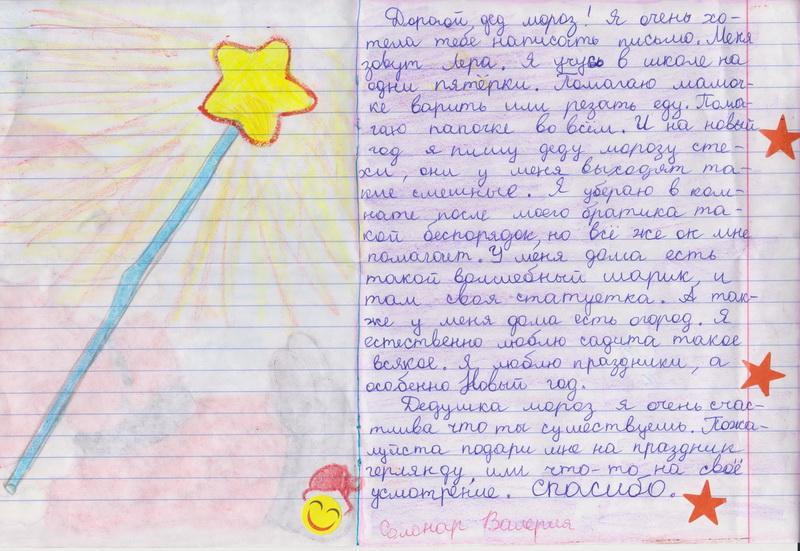 Дорогой, дед мороз! Я очень хо-
тела тебе написать письмо. Меня
зовут Лера. Я учусь в школе на
одни пятёрки. Помагаю мамоч-
ке варить или резать еду. Пома-
гаю папочке во всём. И на новый
год я пишу деду морозу сте-
хи, они у меня выходят та-
кие смешные. Я убераю в ком-
нате после моего братика та-
кой беспорядок, но всё же он мне
помагает. У меня дома есть
такой волшебный шарик, и
там своя статуетка. А так-
же у меня дома есть огород. Я
естественно люблю садита такое
всякое. Я люблю праздники, а
особенно Новый год.
Дедушка мороз я очень счас-
тлива что ты существуешь. Пожа-
луйста подари мне на праздник
герлянду, или что-то на своё
усмотрение. Спасибо.
Солонар Валерия